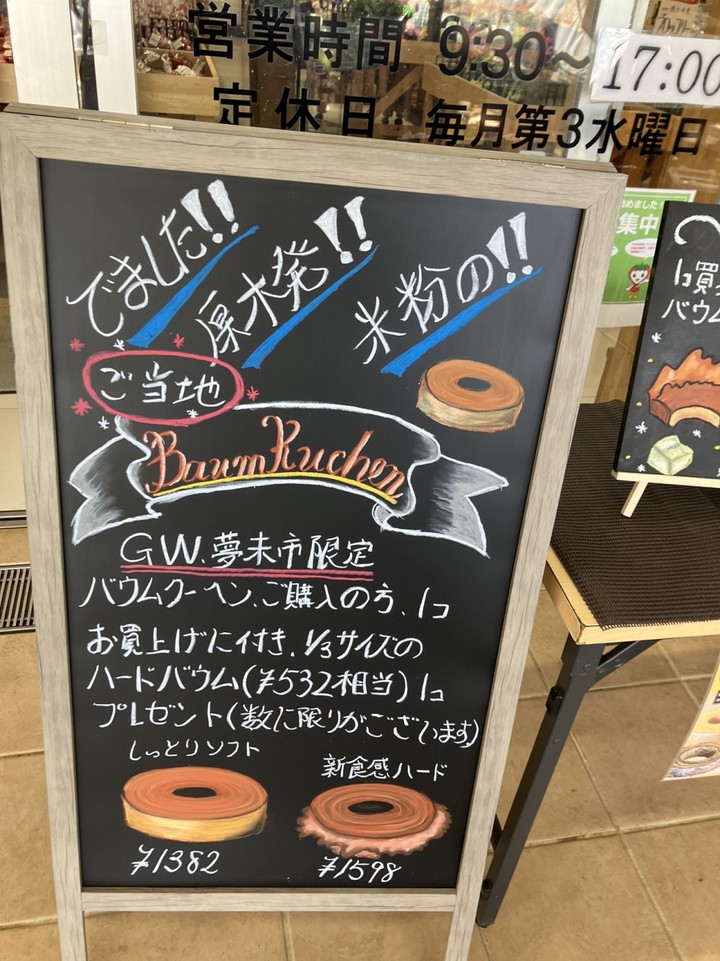 営業時間 9:30～17:00
定休日 毎月第3水曜日
でました!!
厚木発!!
米粉の!!
ご当地
Baum Kuchen
GW.夢未市限定
バウムクーヘン、ご購入の方、1コ
お買上げに付き、1/3サイズの
ハードバウム(¥532相当)1コ
プレゼント(数に限りがございます)
しっとりソフト
新食感ハード
¥1382
¥1598
集中
1コ買
バウム